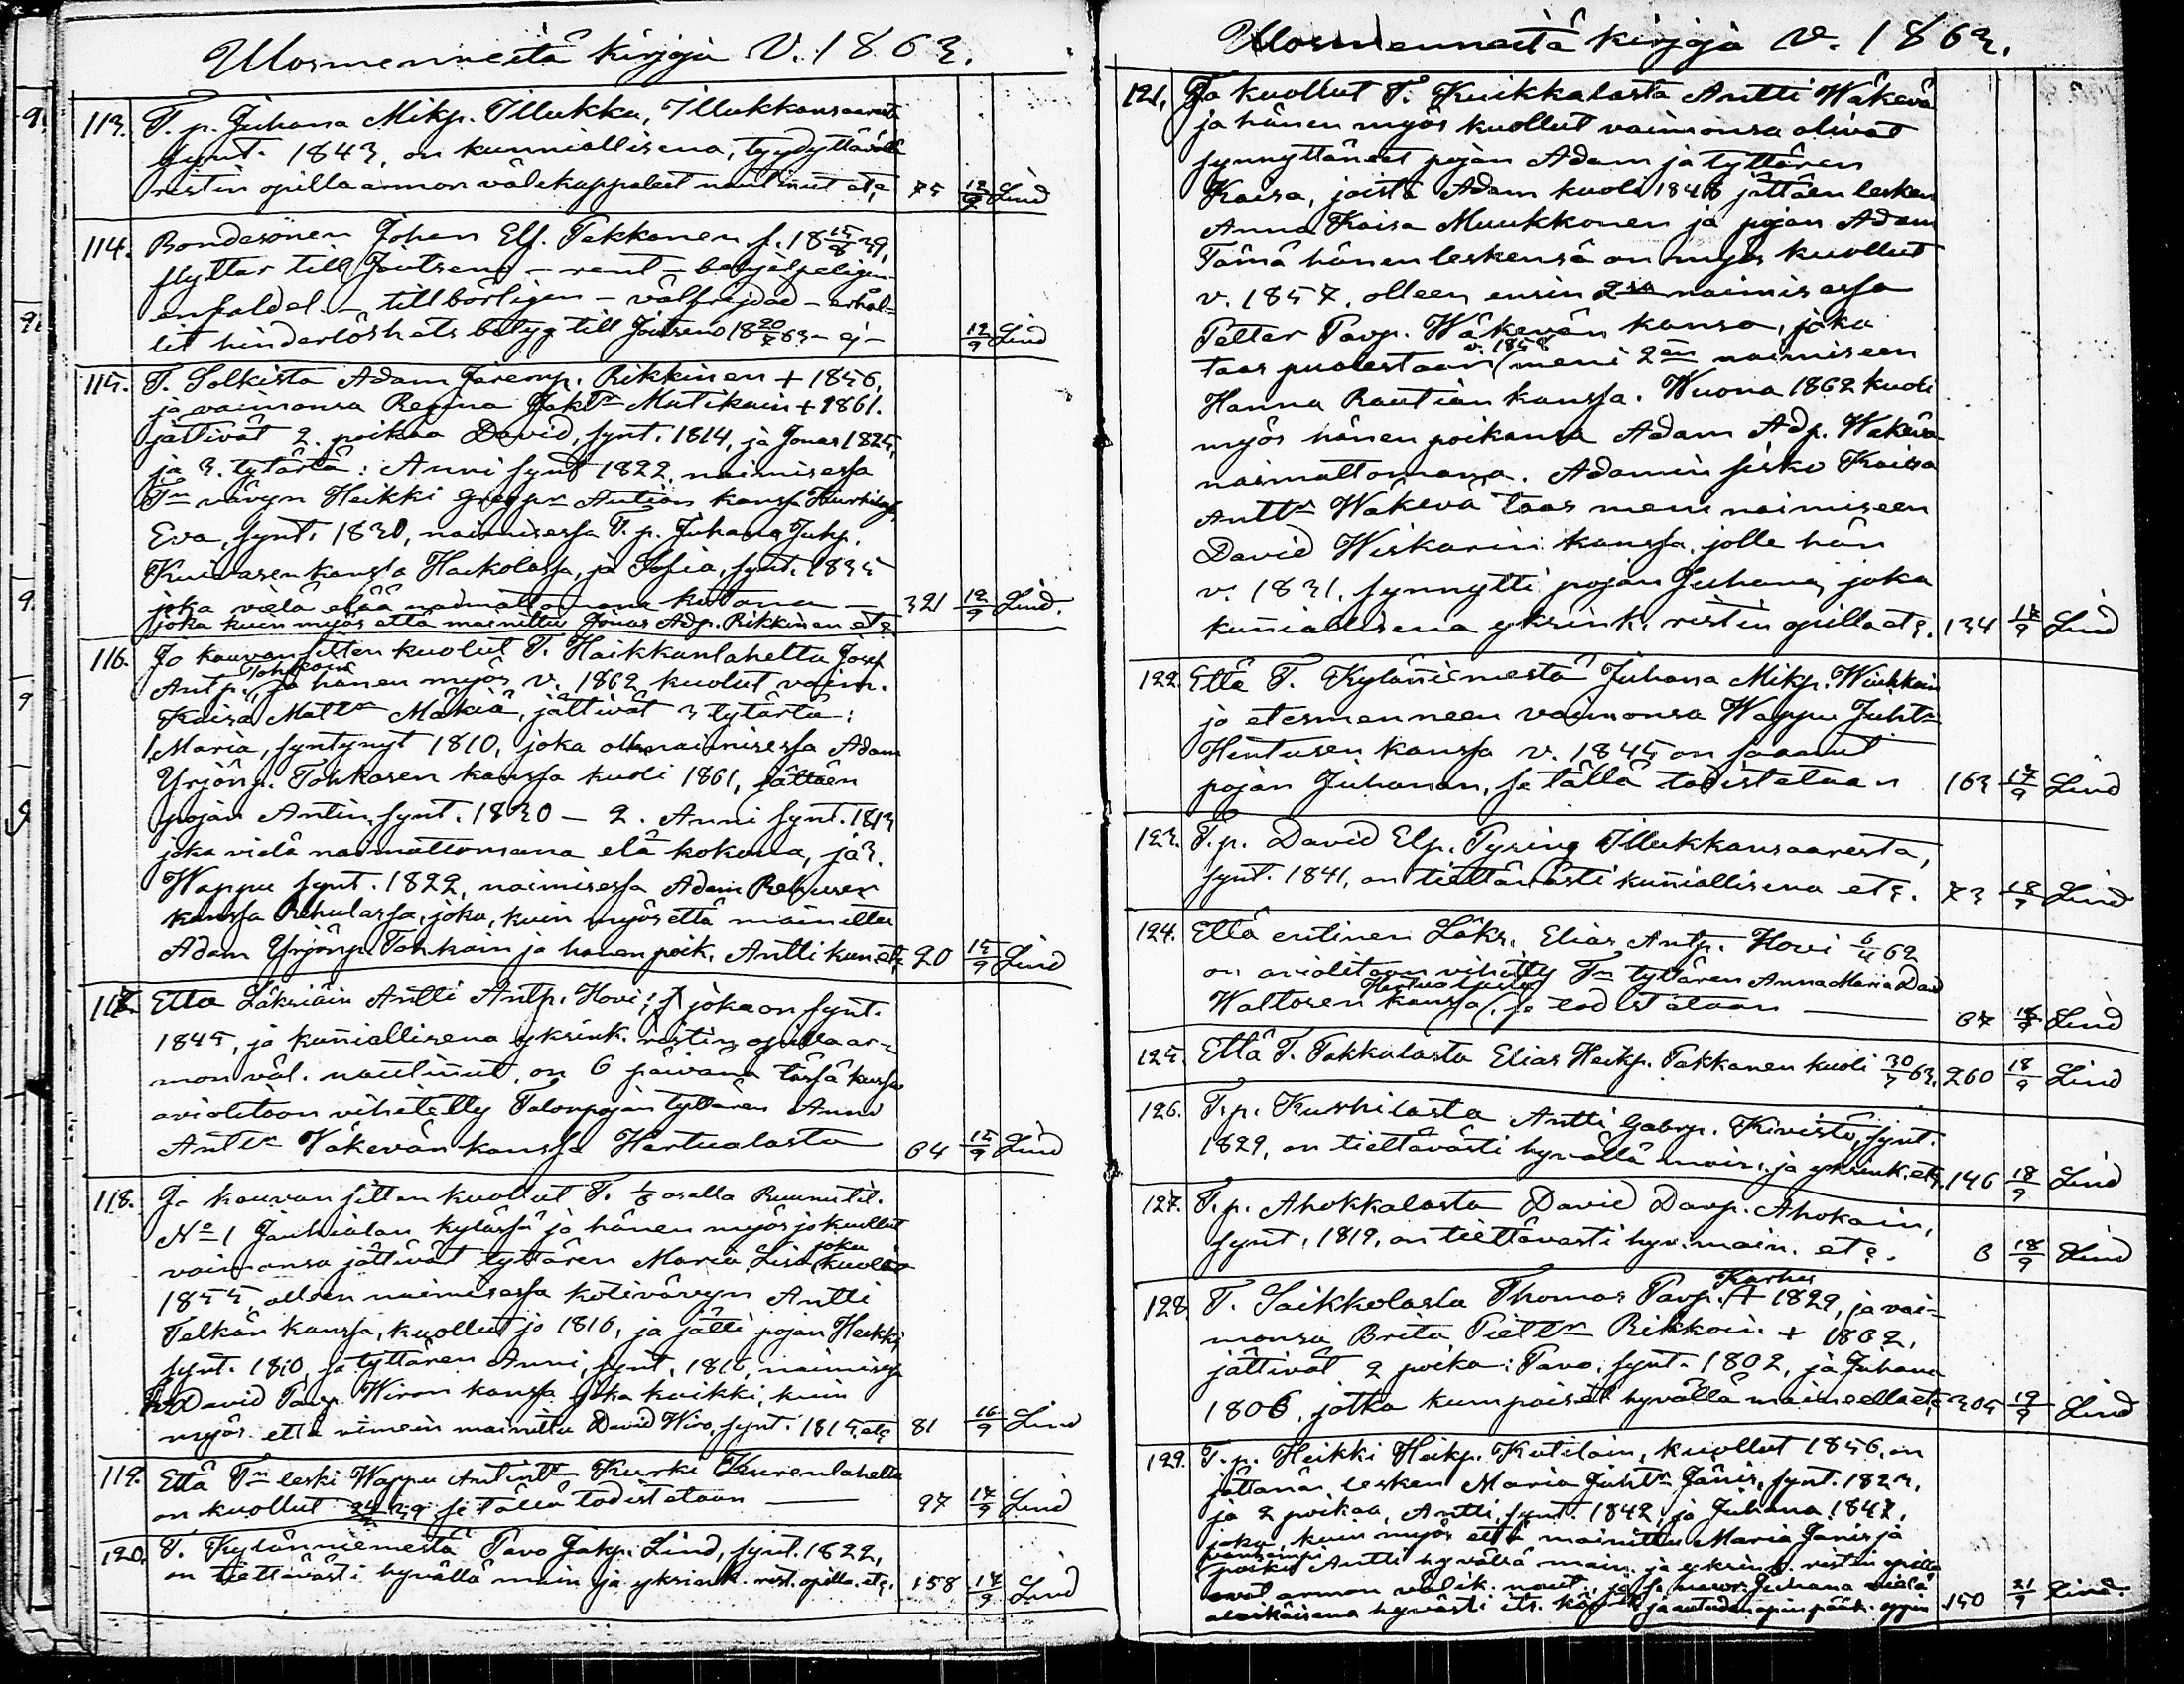 Ulosmenneitä kirjoja V. 1863.
113. T. p. Juhana Mikp. Illukka, Illukkansaaresta
synt. 1843, on kunniallisena, tyydyttävällä
ristin opilla armon välikappaleet nautinnut etc 75 12/9 Lind
114. Bondesonen Johan Elf. Takkanen f. 18 15/8 39,
flyttar till Joutseno – rent –
enfaldel – tillbörligen – välfrejdad – erhål-
lit hinderlöshets betyg till Joutseno 18 20/7 63 – ej – 12/9 Lind
115. T. Solkista Adam Jeremp. Rikkinen + 1856,
ja vaimonsa Regina Jakt:r Matikain + 1861.
jättivät 2. poikaa David, synt. 1814, ja Jonas 1825,
ja 3. tytärtä: Anni synt 1822. naimisessa
T:n vävyn Heikki Antian kanssa
Eva, synt. 1830, naimisessa T. p. Juhana Juhp.
Kuivasen kanssa Haikolassa, ja Sofia, synt. 1835
joka vielä elää naimattomana kotona –
joka kuin myös että mainittu Jonas Adp. Rikkinen etc 321 12/9 Lind.
116. Jo kauvan sitten kuolut T. Haikkanlahelta Josef
Antp. Tohkain ja hänen myös v. 1862 kuolut vaim.
Kaisa Matt:r Mäkiä, jättivät 3 tytärtä:
1. Maria, syntynyt 1810, joka oll. naimisessa Adam
Yrjönp. Tohkasen kanssa kuoli 1861, jättäen
pojan Antin, synt. 1830 – 2. Anni synt. 1813
joka vielä naimattomana elä kokona, ja 3.
Wappu synt. 1822, naimisessa Adam Rehusen
kanssa Rehulassa, joka, kuin myös että mainittu
Adam Yrjönp. Tohkain ja hänen poik. Antti kun. etc 20 15/9 Lind
117. Että Läksiäin Antti Antp. Hovi, joka on synt.
1845, ja kuniallisena yksink. ristin opilla ar-
mon väl. nautinut, on 6 päivänä tässä kuussa
aviolitoon vihitetty Talonpojan tyttären Anna
Ant:r Väkevän kanssa Hertualasta 64 15/9 Lind
118. Jo kauvan sitten kuollut T. 1/6 osalla Ruunutil.
No 1 Jauhialan kylässä ja hänen myös jo kuollut
vaimonsa jättivät tyttären Maria Lisa joka kuoli
1855, olleen naimisessa kotivävyn Antti
Telkän kanssa, kuollut jo 1816, ja jätti pojan Heikki,
synt. 1810 ja tyttären Anni, synt. 1816, naimisessa
David Pavp. Wiron kanssa joka kaikki, kuin
myös että viimein mainittu David Wiro, synt. 1815. etc 81 16/9 Lind
119. Että T:n leski Wappu Antint:r Kurki Kurenlahelta
on kuollut 39 se tällä todistetaan — 97 17/9 Lind
120. T. Kylänniemestä Pavo Jakp. Lind, synt. 1822,
on tiettävästi hyvällä main. ja yksink. rist. opilla. etc. 158 17/9 Lind
Ulosmenneitä kirjoja V. 1863.
121. Jo kuollut T. Kuikkalasta Antti Wäkevä
ja hänen myös kuollut vaimonsa olivat
synnyttäneet pojan Adam ja tyttären
Kaisa, joista Adam kuoli 1848 jättäen lesken
Anna Kaisa Muukkonen ja pojan Adam
Tämä hänen leskensä on myös kuollut
v. 1857, olleen ensin 2:sa naimisessa
Petter Pavp. Wäkevän kansa, joka
taas puolestaan v. 1858 meni 2:en naimiseen
Hanna Rautian kanssa. Wuona 1862 kuoli
myös hänen poikansa Adam Adp. Wäkevä
naimattomana. Adamin sisko Kaisa
Antt:r Wäkevä taas meni naimiseen
David Wiskarin kanssa, jolle hän
v. 1831. synnytti pojan Juhana, joka
kuniallisena yksink. ristin opilla etc. 134 17/9 Lind
122. Että T. Kylänniemestä Juhana Mikp. Wiukkain
jo edesmenneen vaimonsa Wappu Juht:r
Hentusen kanssa v. 1845 on saanut
pojan Juhanan, se tällä todistetaan 163 17/9 Lind
123. T. p. David Elp. Pysing Illukkansaaresta,
synt. 1841, on tiettävästi kuniallisena etc. 73 18/9 Lind
124. Että entinen Läks. Elias Antp. Hovi 62
on aviolitoon vihitty T:n tyttären Anna Maria David
Waltosen kanssa Hertualasta, se todistetaan — 67 18/9 Lind
125. Että T. Takkalasta Elias Heikp. Takkanen kuoli 30/7 63. 260 18/9 Lind
126. T. p. Kurhilasta Antti Gabrp. Kivistö, synt.
1829, on tiettävästi hyvällä main. ja yksink. etc. 146 18/9 Lind
127. T. p. Ahokkalasta David Davp. Ahokain,
synt. 1819, on tiettävasti hyv. main. etc. 6 18/9 Lind
128. T. Saikkolasta Thomas Pavp. Karhu + 1829, ja vai-
monsa Brita Piett:r Rikkoin. + 1862,
jättivät 2 poika: Pavo, synt. 1802, ja Juhana
1806, jotka kumpaiset hyvällä maineella etc 305 19/9 Lind
129. T. p. Heikki Heikp. Kutilain, kuollut 1856, on
jättänä lesken Maria Juht:r Jänis, synt. 1823,
ja 2 poikaa, Antti, synt. 1842, ja Juhana 1847,
joka, kuin myös että mainittu Maria Jänis ja
vanhempi poika Antti hyvällä main. ja yksink. ristin opilla
ovat armon välik. naut., ja se nuor. Juhana vielä
alaikäisenä hyvästi 150 21/9 Lind.